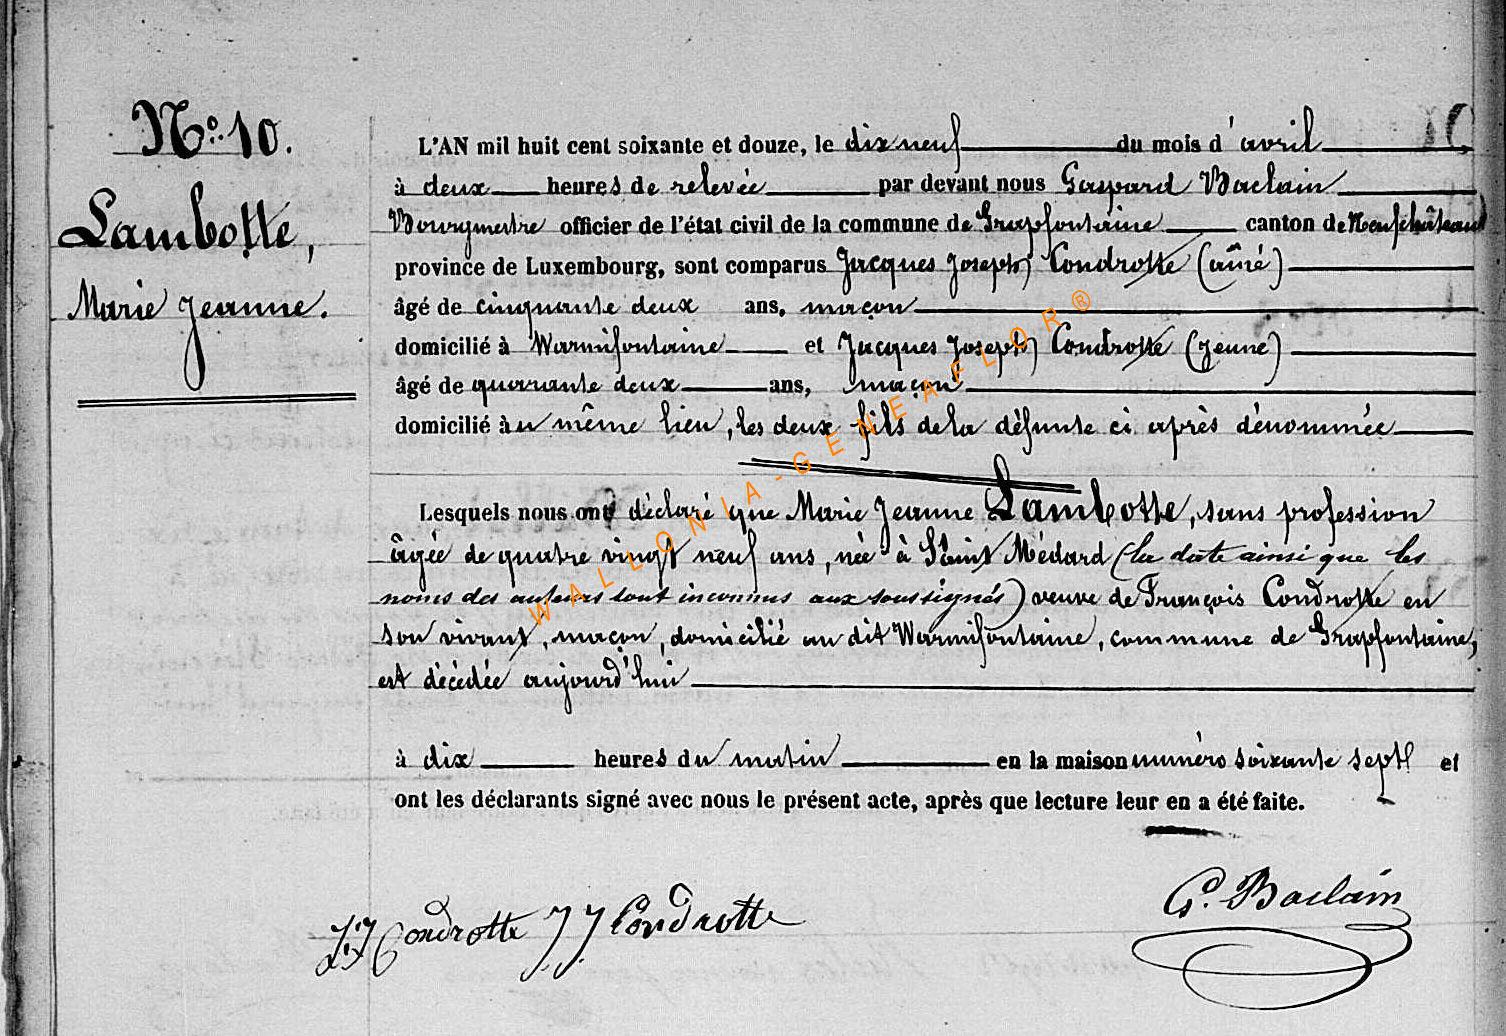 N° 10.
Lambotte,
Marie Jeanne.
L'AN mil huit cent soixante et douze, le dix neuf du mois d'avril
à deux heures de relevée par devant nous Gaspard Baclain
Bourgmestre officier de l'état civil de la commune de Grapfontaine canton de Neufchâteau
province de Luxembourg, sont comparus Jacques Joseph Condrotte (aîné)
âgé de cinquante deux ans, maçon
domicilié à Warmifontaine et Jacques Joseph Condrotte (jeune)
âgé de quarante deux ans, maçon
domicilié au même lieu, les deux fils de la défunte ci après dénommée
Lesquels nous ont déclaré que Marie Jeanne Lambotte, sans profession
âgée de quatre vingt neuf ans, née à Saint Médard (la date ainsi que les
noms des auteurs sont inconnus aux soussignés) veuve de François Condrotte en
son vivant, maçon, domicilié au dit Warmifontaine, commune de Grapfontaine,
est décédée aujourd'hui
à dix heures du matin en la maison numéro soixante sept et
ont les déclarants signé avec nous le présent acte, après que lecture leur en a été faite.
J.J Condrotte J.J. Condrotte
G. Baclain
WALLONIA-GENEAFLOR®